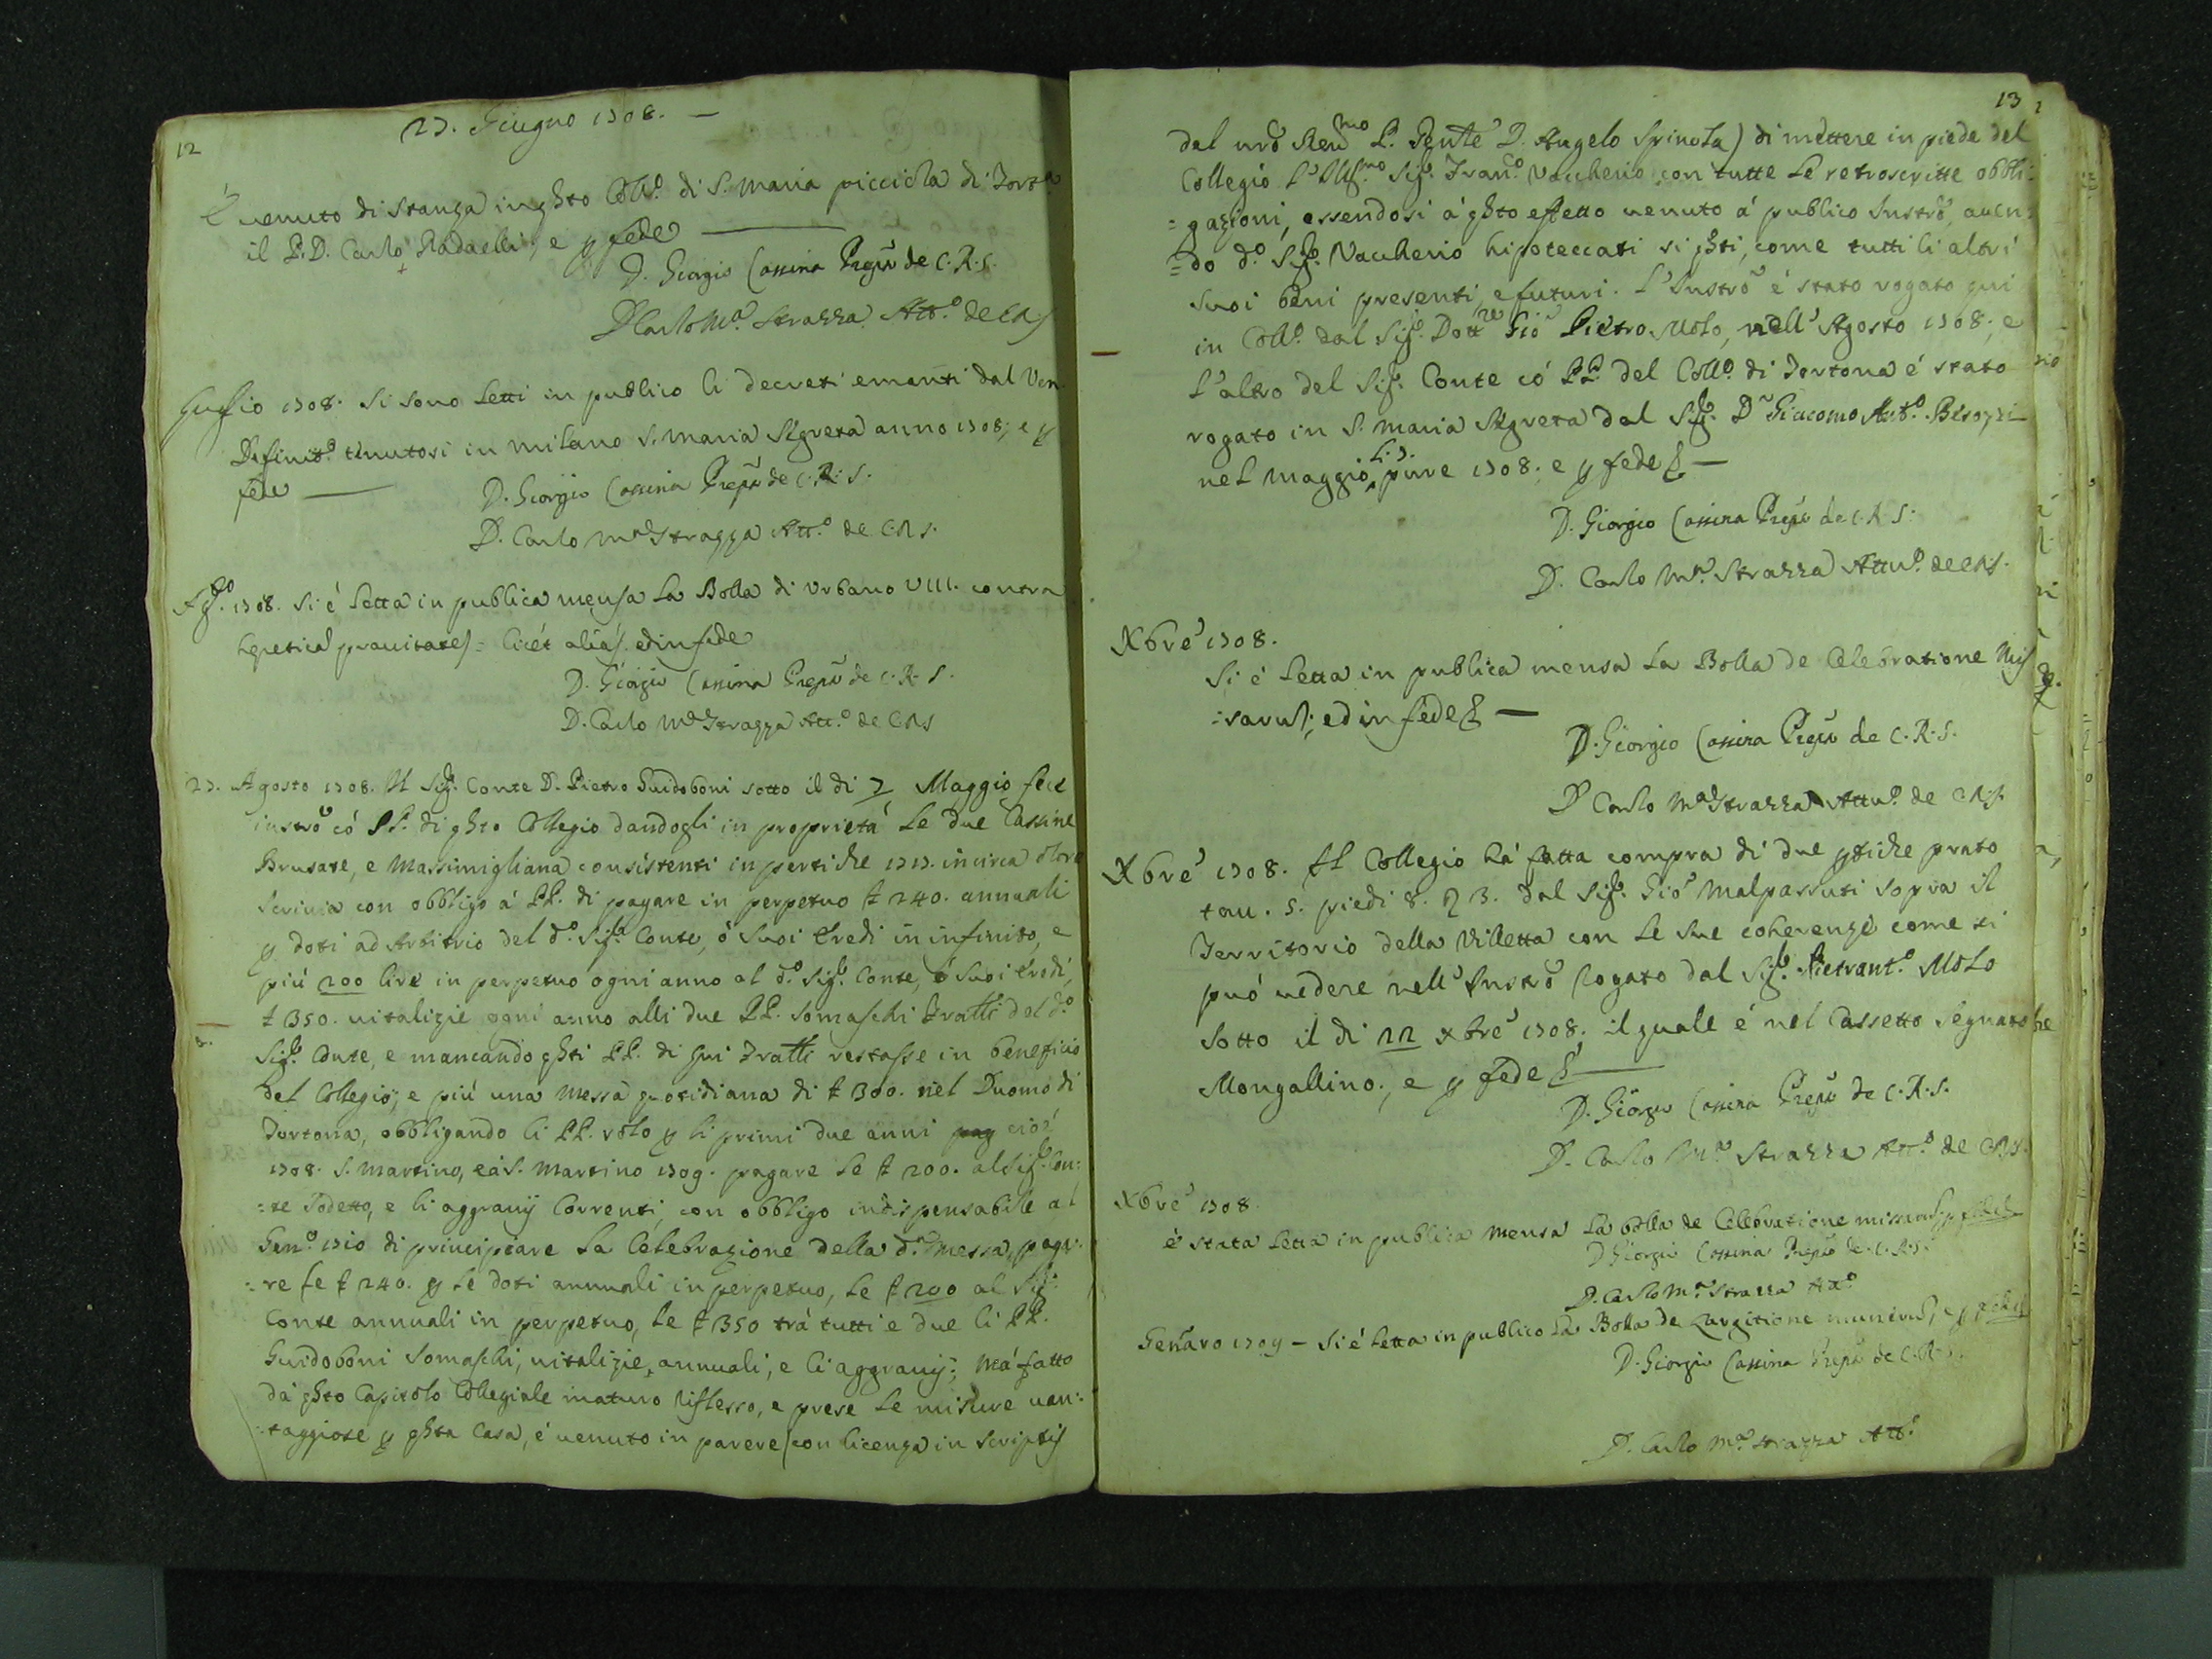 12
27. Giugno 1708. —
É venuto di stanza in qsto Collo. di S. Maria picciola di Torta
il P. D. Carlo Radaelli, e p fede —
D. Giorgio Cassina Prepto de C. R. S.
D. Carlo Ma. Strazza Atto. de CRS
Luglio 1708. Si sono letti in publico li decreti emanti dal Ven.
Definito. tenutosi in Milano S. Maria Segreta anno 1708; e p
fede — D. Giorgio Cassina Prepto de C. R. S.
D. Carlo Ma Strazza Atto. de C.R.S.
Agto. 1708. Si é letta in publica mensa la Bolla di Urbano VIII. contra
heretica pravitates = licét aliás. ed in fede
D. Giorgio Cassina Prepto de C. R. S.
D. Carlo Ma Strazza Atto. de CRS
27. Agosto 1708. Il Sigr. Conte D. Pietro Guidoboni sotto il di 7 Maggio fece
instro có PP. di qsto Collegio dandogli in proprietá le due Cassine
Brusate, e Massimigliana consistenti in pertiche 1717. incirca oltre
scrivia con obbligo á PP. di pagare in perpetuo £ 240. annuali
p doti ad Arbitrio del do. Sigr. Conte, ó suoi Eredi in infinito, e
piú 200 lire in perpetuo ogni anno al do. Sigr. Conte, ó suoi Eredi,
£ 350. vitalizie ogni anno alli due PP. Somaschi Fratti del do.
Sigr. Conte, e mancando qsti PP. di lui Fratti restasse in beneficio
del Collegio; e piú una Messa quotidiana di £ 300. nel Duomo di
Tortona, obbligando li PP. solo p li primi due anni pag cioé
1708. S. Martino, e á S. Martino 1709. pagare le £ 200. al Sigr. Con:
:te sodetto, e li aggravij correnti, con obbligo indispensabile al
Geno. 1710 di principiare la Celebrazione della da. Messa, paga:
:re le £ 240. p le doti annuali in perpetuo, le £ 200 al Sigr.
Conte annuali in perpetuo, le £ 350 trá tutti e due li PP.
Guidoboni Somaschi, vitalizie, annuali, e li aggravij; Má fatto
dá qsto Capitolo Collegiale maturo riflesso, e prese le misure van:
:taggiose p qsta Casa, é venuto in parere (con licenza in scriptis
13
dal nro Revmo P. Ppnte D. Angelo Spinola) di mettere in piede del
Collegio l'Illmo Sigr. Franco. Vaccherio con tutte le retroscritte obbli:
:gazioni, essendosi á qsto effetto venuto á publico Instro, aven:
:do do. Sigr. Vaccherio hipoteccati si qsti, come tutti li altri
suoi beni presenti, e futuri. L'Instro é stato rogato qui
in Collo. dal Sigr. Dottre Gió Pietro Molo, nell'Agosto 1708; e
l'altro del Sigr. Conte có PP. del Collo. di Tortona é stato
rogato in S. Maria Segreta dal Sigr. Dr Giacomo Anto.
nel Maggio li 7. pure 1708. e p fede —
D. Giorgio Cassina Prepto de C. R. S.
D. Carlo Ma. Strazza Attuo. de CRS.
Xbre 1708.
Si é letta in publica mensa la Bolla de Celebratione Mis
:sarum; ed in fede —
D. Giorgio Cassina Prepto de C. R. S.
D. Carlo Ma Strazza Attuo. de CRS.
Xbre 1708. Il Collegio há fatta compra di due ptiche prato
tav. 5. piedi 8. 3. dal Sigr. Gió Malpassuti sopra il
Territorio della Villetta con le sue coherenze come si
puó vedere nell'Instro rogato dal Sigr. Pietranto. Molo
sotto il di 22 Xbre 1708; il quale é nel Cassetto Segnato
Mongallino; e p fede —
D. Giorgio Cassina Prepto de C. R. S.
D. Carlo Ma Strazza Atto. de CRS.
Xbre 1708.
é stata letta in publica mensa la bolla de Celebratione missarum p fede
D. Giorgio Cassina Prepto de C. R. S.
D. Carlo Ma. Strazza Atto.
Genaro 1709 — Si é letta in publico la Bolla de Largitione munerum, e p fede
D. Giorgio Cassina Prepto de C. R. S.
D. Carlo Ma. Strazza Atto.